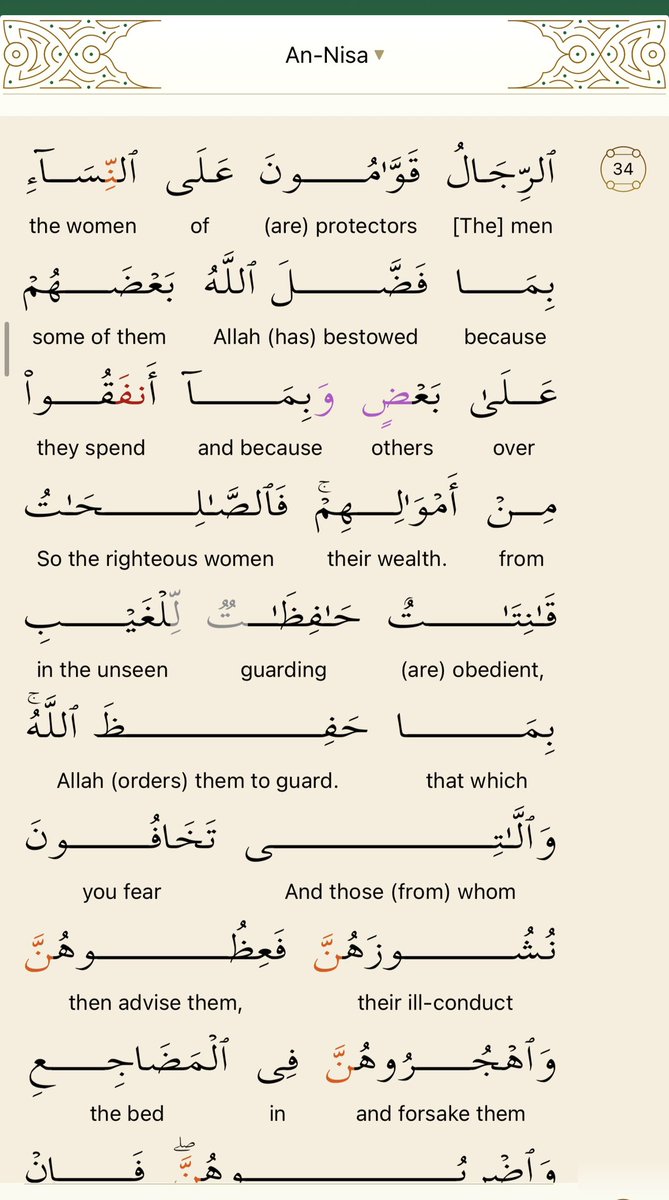 An-Nisa
34
ٱلرِّجَالُ قَوَّٰمُونَ عَلَى ٱلنِّسَآءِ
[The] men (are) protectors of the women
بِمَا فَضَّلَ ٱللَّهُ بَعْضَهُمْ
because Allah (has) bestowed some of them
عَلَىٰ بَعْضٍ وَبِمَآ أَنفَقُوا۟
over others and because they spend
مِنْ أَمْوَٰلِهِمْ ۚ فَٱلصَّٰلِحَٰتُ
from their wealth. So the righteous women
قَٰنِتَٰتٌ حَٰفِظَٰتٌ لِّلْغَيْبِ
(are) obedient, guarding in the unseen
بِمَا حَفِظَ ٱللَّهُ ۚ
that which Allah (orders) them to guard.
وَٱلَّٰتِى تَخَافُونَ
And those (from) whom you fear
نُشُوزَهُنَّ فَعِظُوهُنَّ
their ill-conduct then advise them,
وَٱهْجُرُوهُنَّ فِى ٱلْمَضَاجِعِ
and forsake them in the bed
وَٱضْرِبُوهُنَّ ۖ فَإِنْ